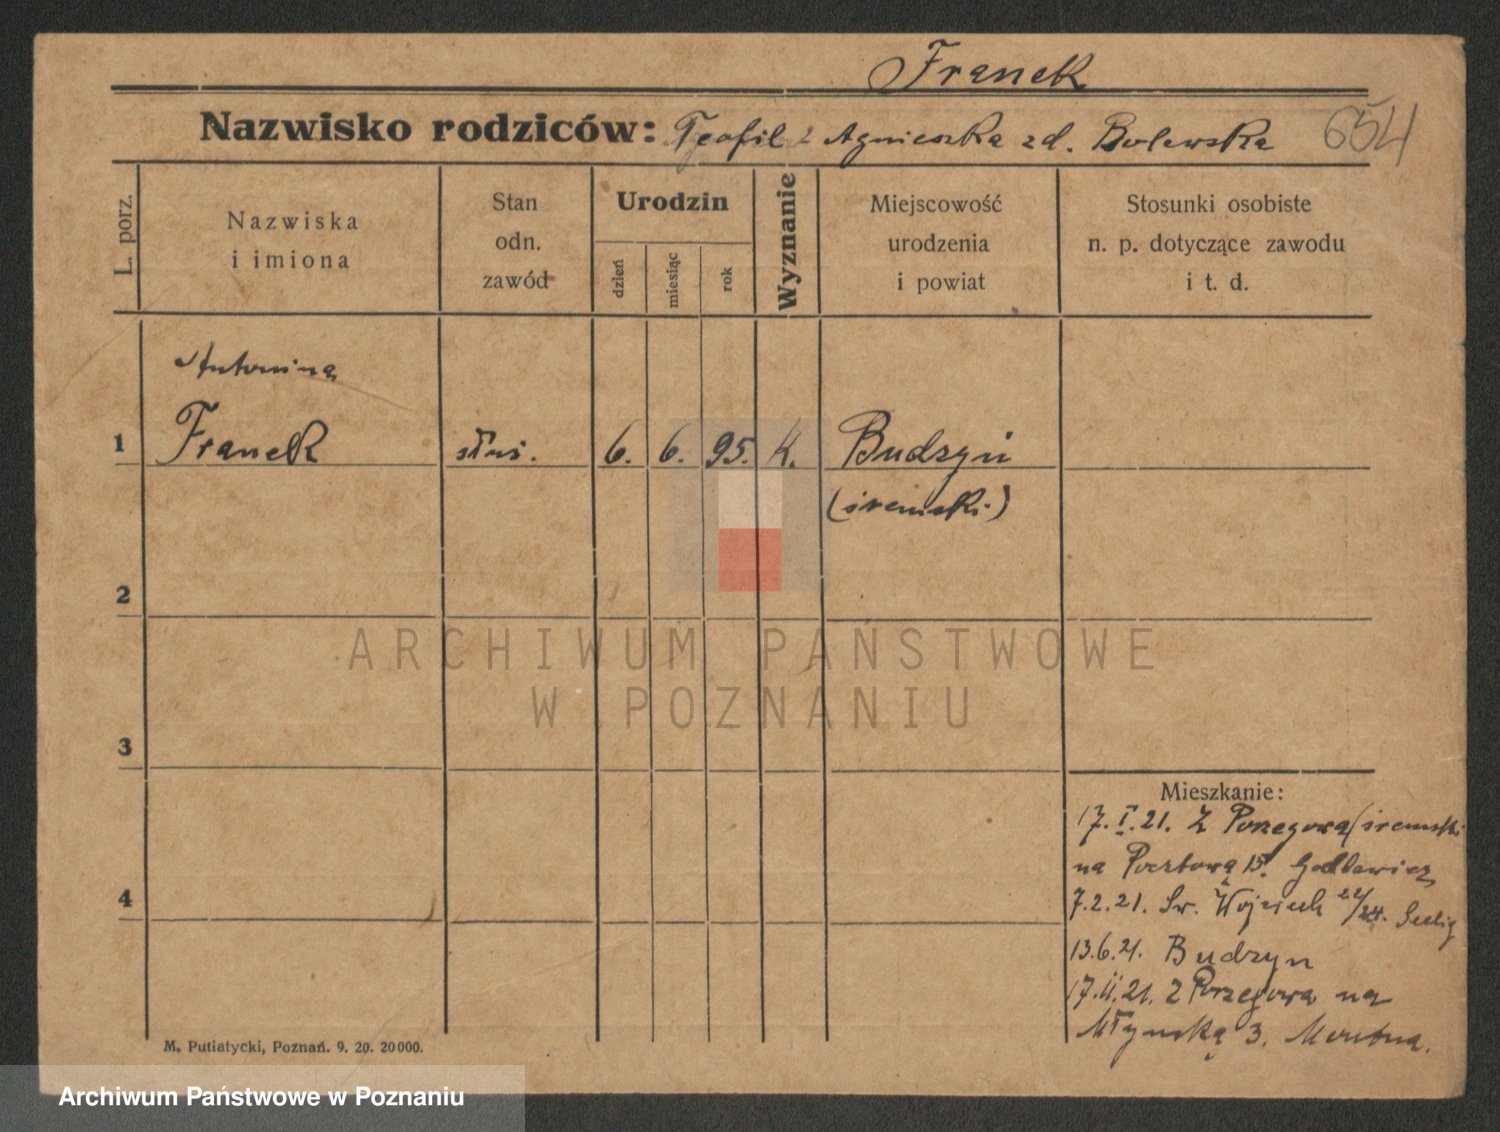 Franek
Nazwisko rodziców: Teofil i Agnieszka zd. Bolewska 654
L. porz.
Nazwiska
i imiona
Stan
odn.
zawód
Urodzin
dzień
miesiąc
rok
Wyznanie
Miejscowość
urodzenia
i powiat
Stosunki osobiste
n. p. dotyczące zawodu
i t. d.
Antonina
1 Franek służ. 6. 6. 95. K. Budzyń
(śremski)
2
ARCHIWUM PAŃSTWOWE
W POZNANIU
3
Mieszkanie:
17.I.21. z (śremski
na Pocztową 15.
4
7.2.21. Św. Wojciech 22/24.
13.6.21. Budzyn
17.II.21. z na
Młyńską 3.
M. Putiatycki, Poznań. 9. 20. 20000.
Archiwum Państwowe w Poznaniu